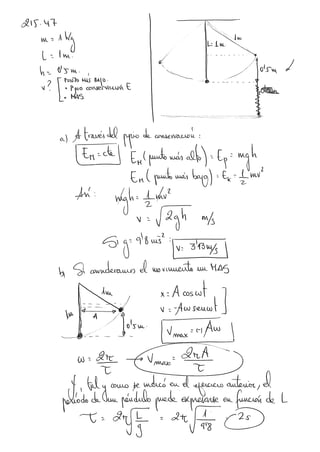 215.47
m = 1 Kg
L = 1m.
h = 0'5 m.
v? [ Punto más bajo.
• Ppio conservación E
• MAS
L = 1m
1m
0'5m
a) A través del ppio de conservación :
E_M = cte
E_M (punto más alto) = E_p = mgh
E_M (punto más bajo) = E_k = 1/2 mv²
Así : mgh = 1/2 mv²
v = √2gh m/s
Si g = 9'8 ms⁻² : v = 3'13 m/s
b) Si consideramos el movimiento un MAS
1m
1m
A
0'5m
x = A cos ωt
v = -Aω sen ωt
V_max = Aω
ω = 2π/T → V_max = 2πA/T
Y, tal y como se indicó en el ejercicio anterior, el
período de un péndulo puede expresarse en función de L
T = 2π √L/g = 2π √1/9'8 = 2s